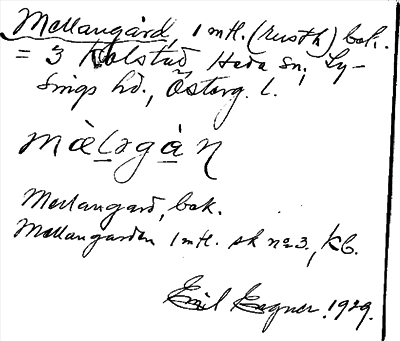 Mellangård, 1 mtl. (rusth) bek.
= 3 Kolstad Heda sn, Ly-
sings hd., Österg. l.
mèlәgàn
Mellangard, bek.
Mellangarden 1 mtl. sk no 3, Kb.
Emil Hagner. 1929.